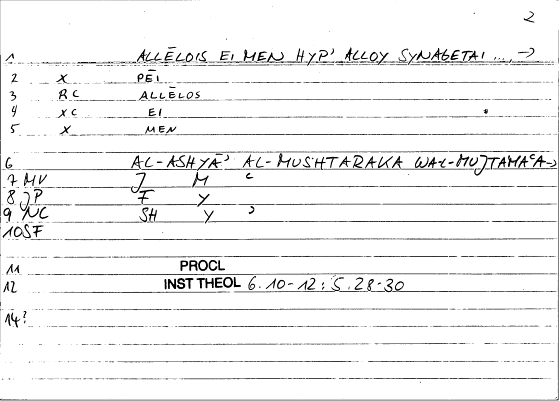 2
1 ALLĒLOIS EI MEN HYP' ALLOY SYNAGETAI ... →
2 X PĒI
3 RC ALLĒLOS
4 XC EI
5 X MEN
6 AL-ASHYĀ' AL-MUSHTARAKA WAL-MUJTAMAʿA→
7 MV J M ʿ
8 JP F Y
9 NC SH Y ʾ
10 SF
11 PROCL
12 INST THEOL 6.10-12; 5.28-30
14?